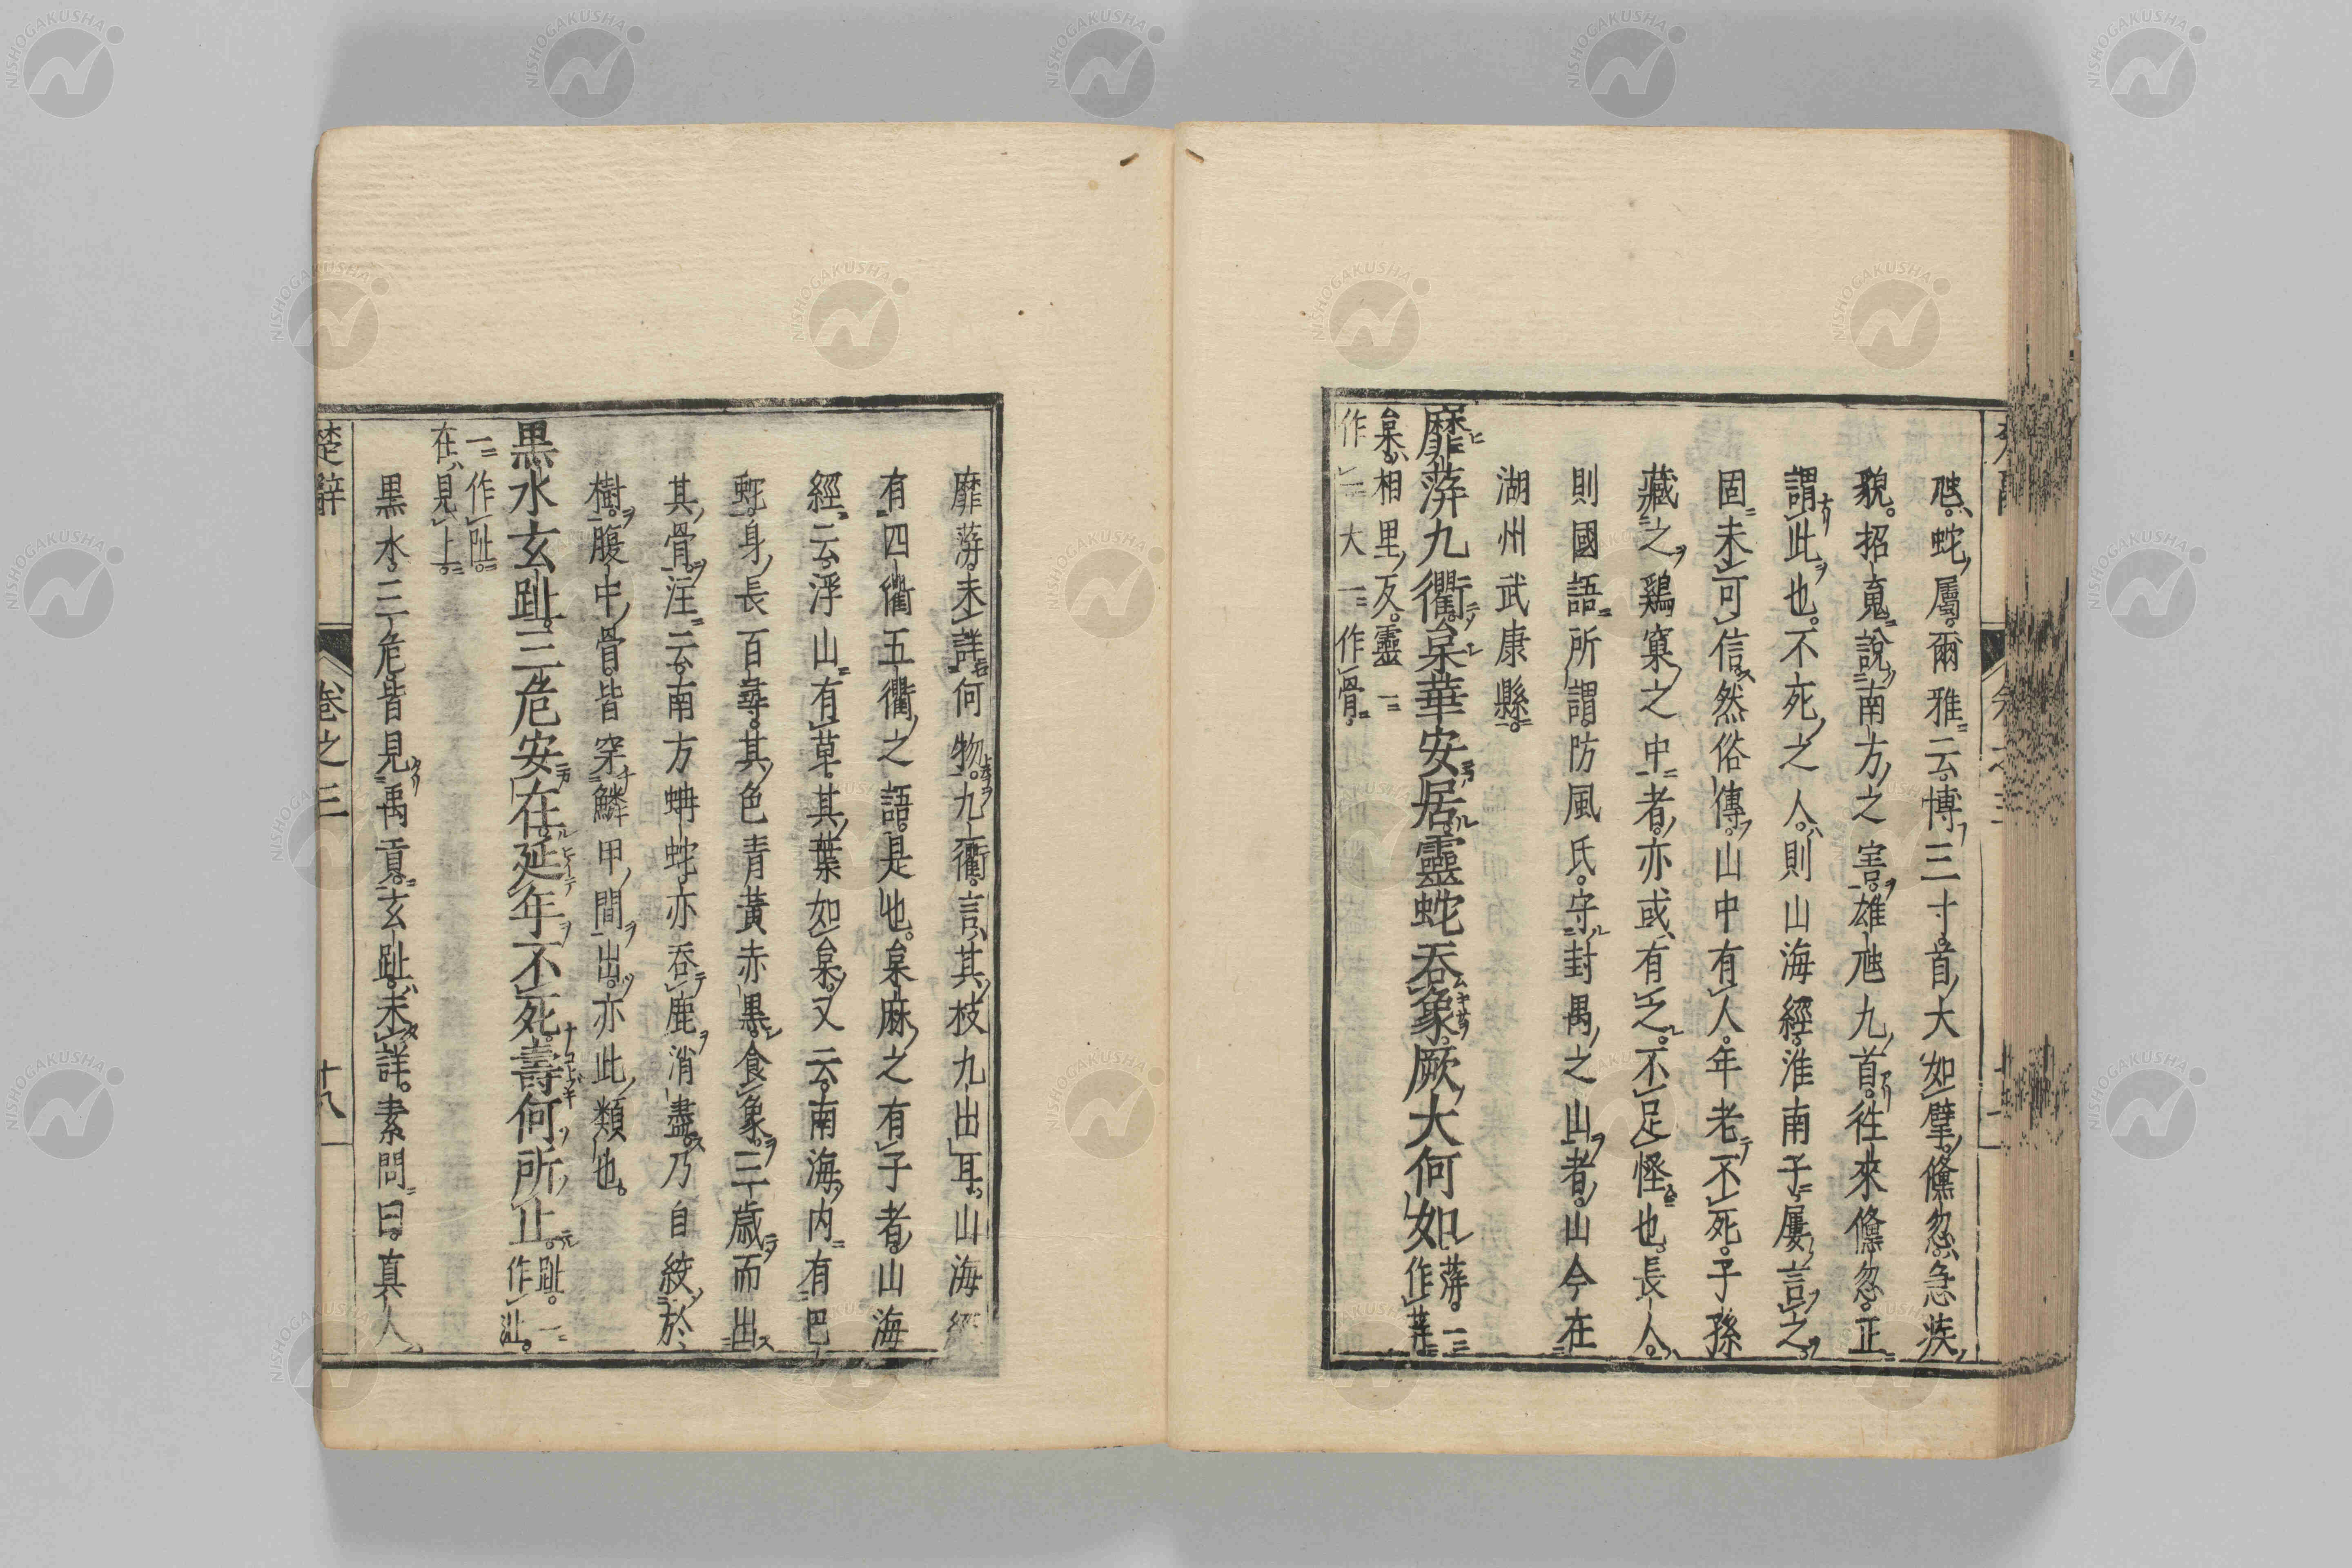 虺蛇屬爾雅云博三寸首大如擘儵忽急疾
貌招䰟說南方之害雄虺九首徃來儵忽正
謂此也不死之人則山海經淮南子屢言之
固未可信然俗傳山中有人年老不死子孫
藏之鷄窠之中者亦或有之不足怪也長人
則國語所謂防風氏守封禺之山者山今在
湖州武康縣
靡蓱九衢枲華安居靈蛇吞象厥大何如蓱一作荓
枲相里反靈一作一大一作骨
靡蓱未詳何物九衢言其枝九出耳山海經
有四衢五衢之語是也枲麻之有子者山海
經云浮山有草其葉如枲又云南海内有巴
蛇身長百尋其色青黃赤黑食象三歲而出
其骨注云南方蚺蛇亦吞鹿消盡乃自絞於
樹腹中骨皆穿鱗甲間出亦此類也
黒水玄趾三危安在延年不死壽何所止趾一作沚
一作阯在見上
黒水三危皆見禹貢玄趾未詳素問曰真人
楚辭 卷之三 十八